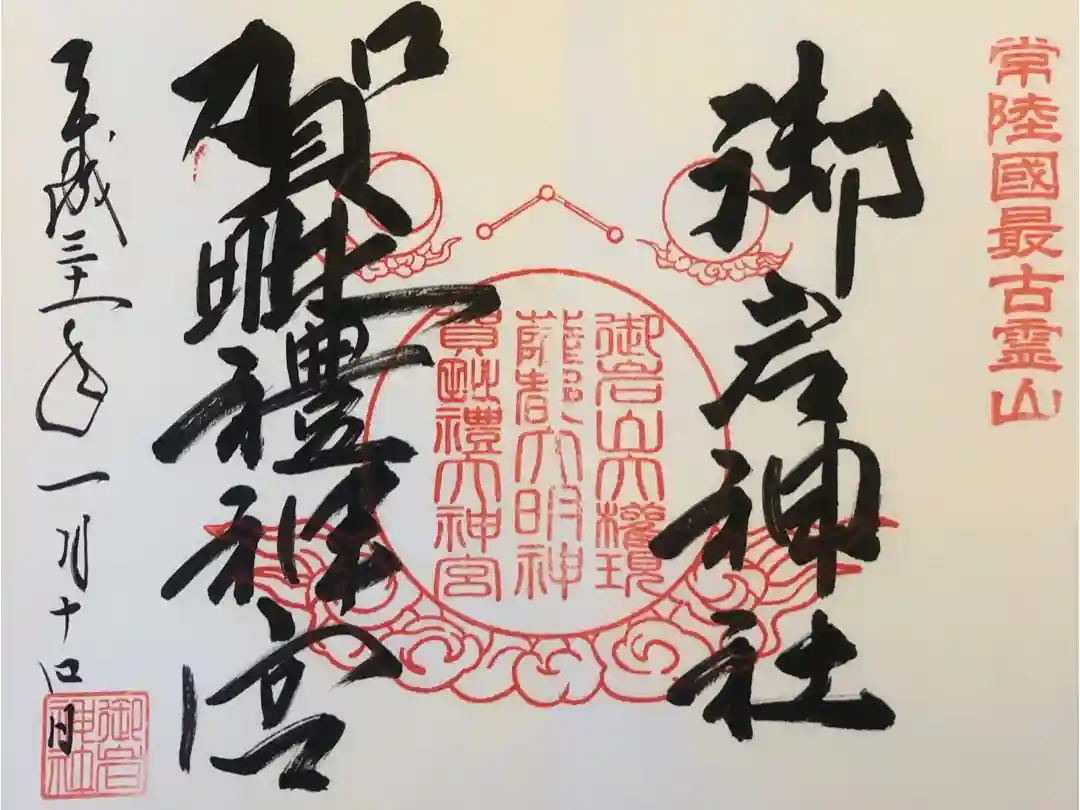 常陸國最古霊山
御岩神社
御岩山大權現
大明神
賀毗禮大神宮
賀毗禮神宮
平成三十一年一月十四日
御岩